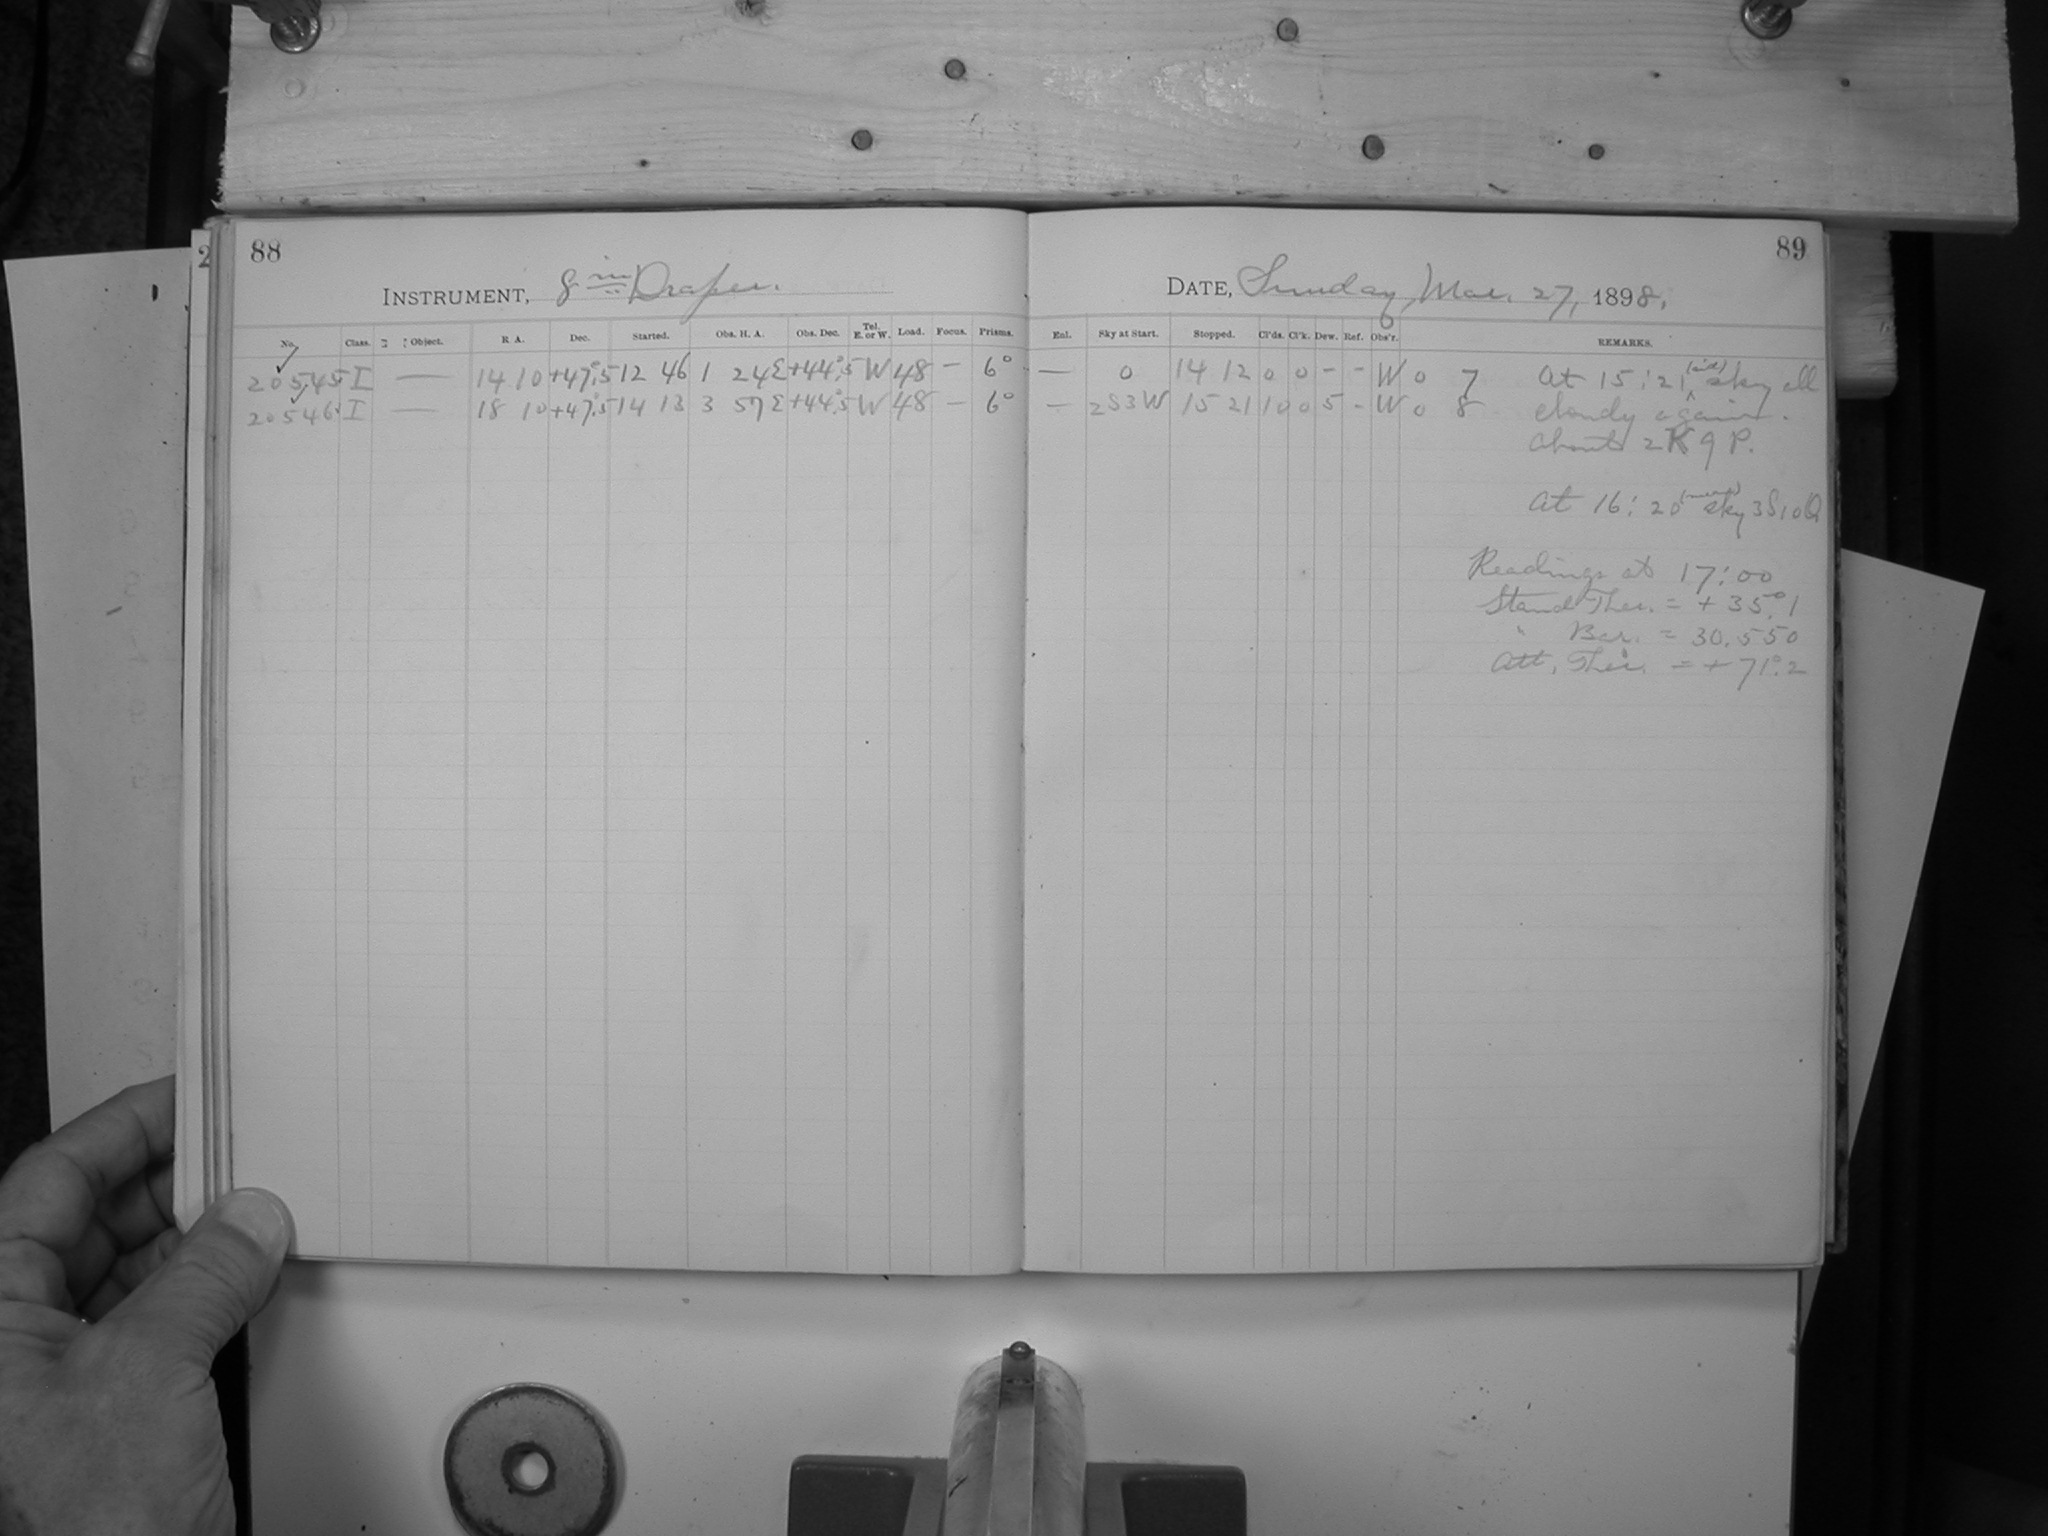 2
88
INSTRUMENT, 8 in Draper.
No. Class. Object. R. A. Dec. Started. Obs. H. A. Obs. Dec. Tel. E. or W. Load. Focus. Prisms.
20545 I — 14 10 +47°.5 12 46 1 24 E +44°.5 W 48 — 6°
20546 I — 18 10 +47°.5 14 13 3 57 E +44°.5 W 48 — 6°
89
DATE, Sunday Mar. 27, 1898.
Enl. Sky at Start. Stopped. Cl'ds. Cl'k. Dew. Ref. Obs'r. REMARKS.
— 0 14 12 0 0 - - W 0 7 At 15:21 (sid) sky all
— 2S3W 15 21 10 0 5 - W 0 8 cloudy again.
about 2K9P.
At 16:20 sky 3S10Q
Readings at 17:00
Stand Ther. = +35°.1
" Bar. = 30.550
Att. Ther. = +71°.2